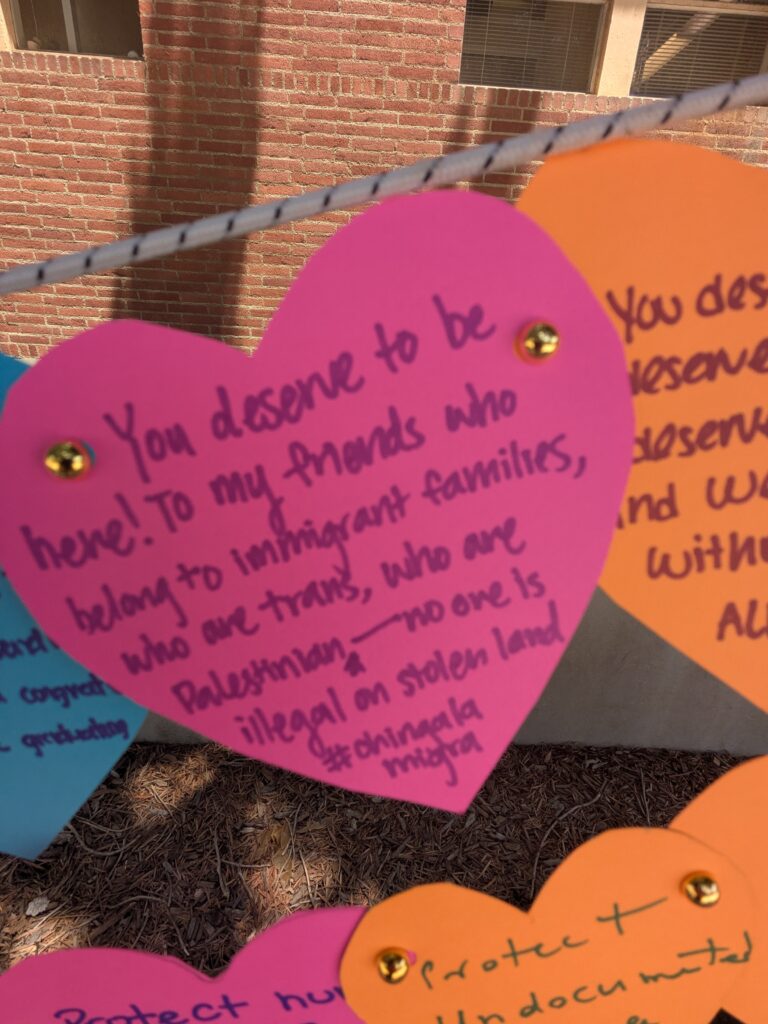 You deserve to be
here! To my friends who
belong to immigrant families,
who are trans, who are
Palestinian — no one is
illegal on stolen land
#chingala
migra
You des
deserve
deserve
and
witho
ALL
congrat
graduating
Protect
Undocumented
Protect hu